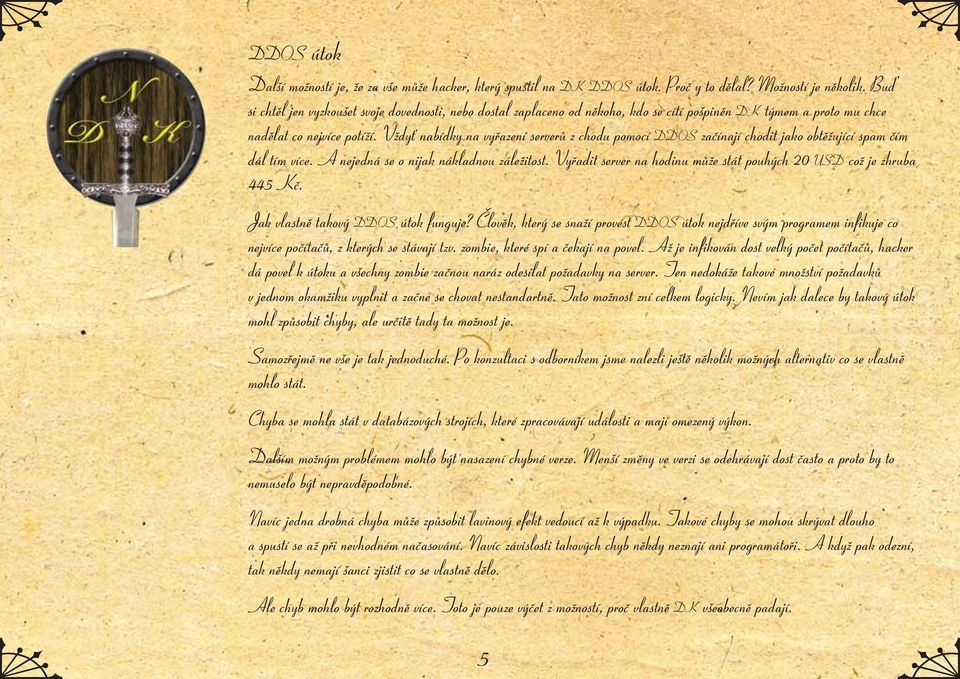 N
D K
DDOS útok
Další možností je, že za vše může hacker, který spustil na DK DDOS útok. Proč y to dělal? Možností je několik. Buď
si chtěl jen vyzkoušet svoje dovednosti, nebo dostal zaplaceno od někoho, kdo se cítí pošpiněn DK týmem a proto mu chce
nadělat co nejvíce potíží. Vždyť nabídky na vyřazení serverů z chodu pomocí DDOS začínají chodit jako obtěžující spam čím
dál tím více. A nejedná se o nijak nákladnou záležitost. Vyřadit server na hodinu může stát pouhých 20 USD což je zhruba
445 Kč.
Jak vlastně takový DDOS útok funguje? Člověk, který se snaží provést DDOS útok nejdříve svým programem infikuje co
nejvíce počítačů, z kterých se stávají tzv. zombie, které spí a čekají na povel. Až je infikován dost velký počet počítačů, hacker
dá povel k útoku a všechny zombie začnou naráz odesílat požadavky na server. Ten nedokáže takové množství požadavků
v jednom okamžiku vyplnit a začne se chovat nestandartně. Tato možnost zní celkem logicky. Nevím jak dalece by takový útok
mohl způsobit chyby, ale určitě tady ta možnost je.
Samozřejmě ne vše je tak jednoduché. Po konzultaci s odborníkem jsme nalezli ještě několik možných alternativ co se vlastně
mohlo stát.
Chyba se mohla stát v databázových strojích, které zpracovávají události a mají omezený výkon.
Dalším možným problémem mohlo být nasazení chybné verze. Menší změny ve verzi se odehrávají dost často a proto by to
nemuselo být nepravděpodobné.
Navíc jedna drobná chyba může způsobit lavinový efekt vedoucí až k výpadku. Takové chyby se mohou skrývat dlouho
a spustí se až při nevhodném načasování. Navíc závislosti takových chyb někdy neznají ani programátoři. A když pak odezní,
tak někdy nemají šanci zjistit co se vlastně dělo.
Ale chyb mohlo být rozhodně více. Toto je pouze výčet z možností, proč vlastně DK všeobecně padají.
5